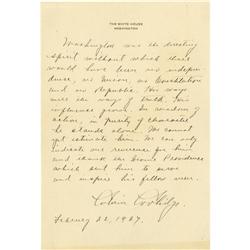 THE WHITE HOUSE
WASHINGTON
Washington was the directing
spirit without which there
would have been no indepen-
dence, no Union, no Constitution
and no Republic. His ways
were the ways of truth. His
influence grows. In wisdom of
action, in purity of character
he stands alone. We cannot
yet estimate him. We can only
indicate our reverence for him
and thank the Divine Providence
which sent him to serve
and inspire his fellow men.
Calvin Coolidge
February 22, 1927.